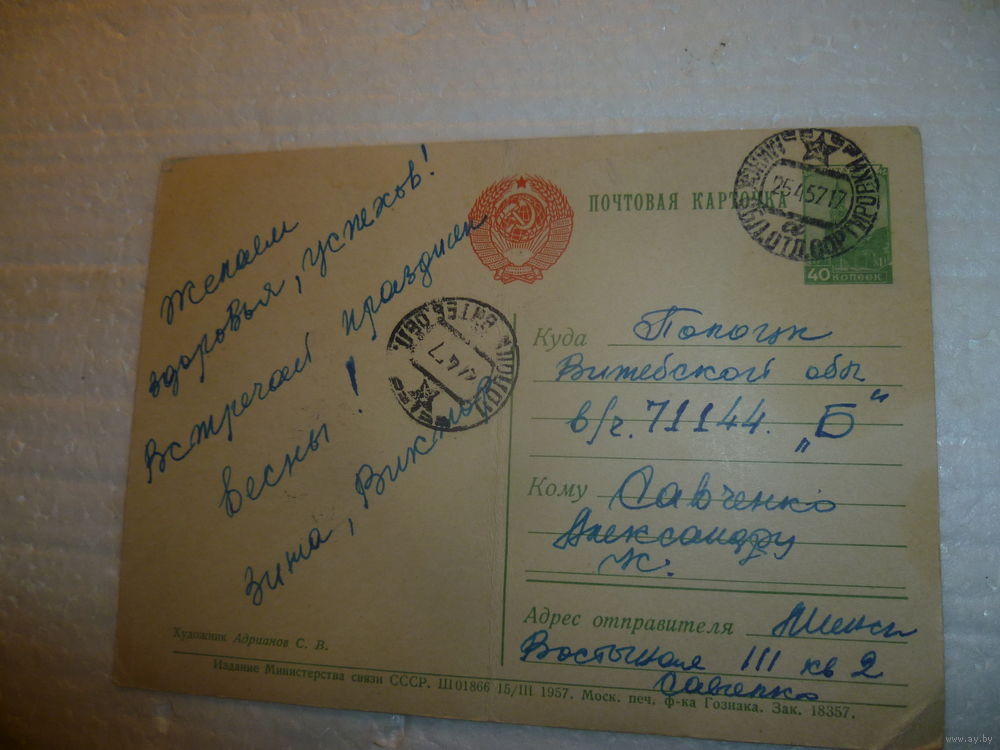 Желаем
здоровья, успехов!
Встречай праздник
весны!
Зина, Виктор
Художник Адрианов С. В.
Издание Министерства связи СССР. Ш01866 15/III 1957. Моск. печ. ф-ка Гознака. Зак. 18357.
ПОЧТОВАЯ КАРТОЧКА
25 4 57 17
40 КОПЕЕК
Куда Полоцк
Витебской обл
в/ч. 71144. „Б“
Кому Савченко
Александру
Адрес отправителя Минск
111 кв 2
Савченко
www.ay.by